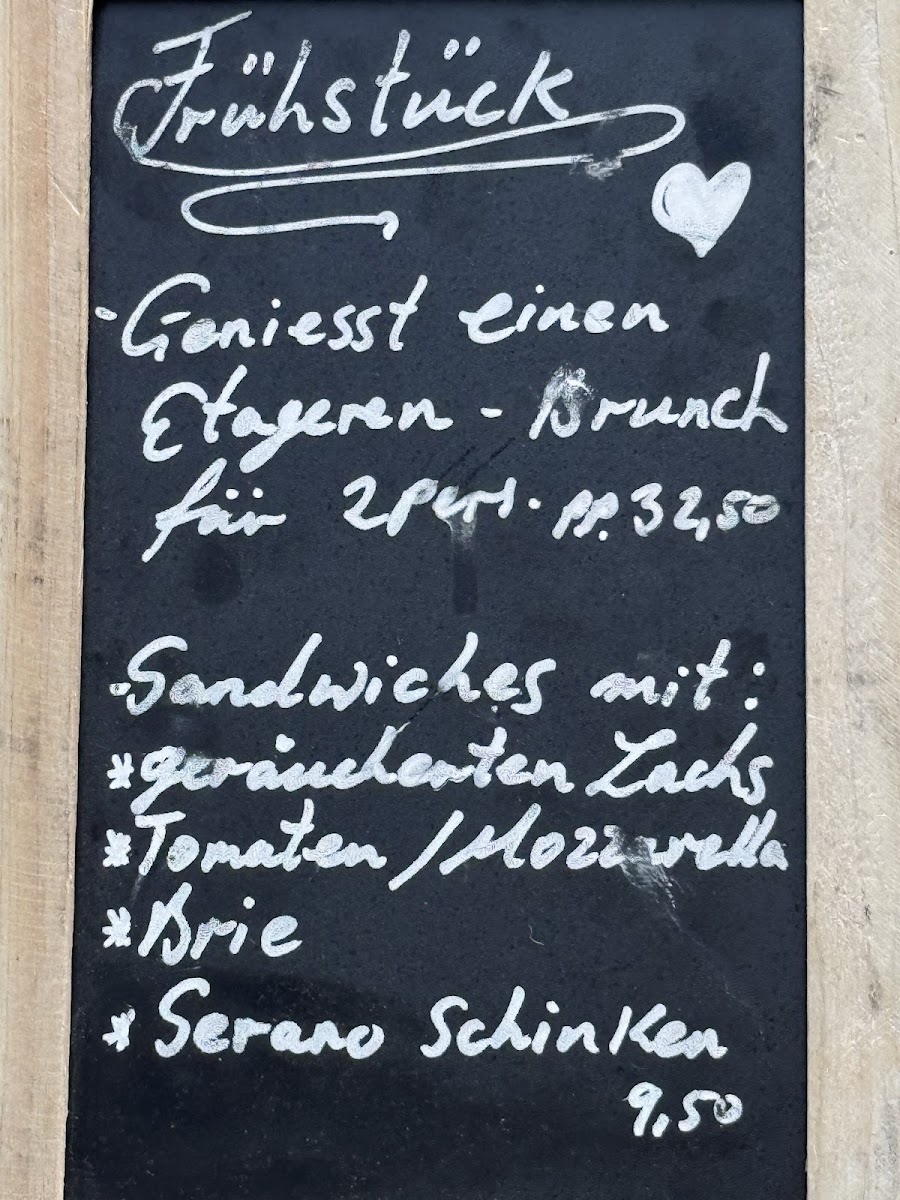 Frühstück
- Geniesst einen
Etageren - Brunch
für 2 Pers. pp. 32,50
- Sandwiches mit:
* geräucherten Lachs
* Tomaten / Mozzarella
* Brie
* Serano Schinken
9,50